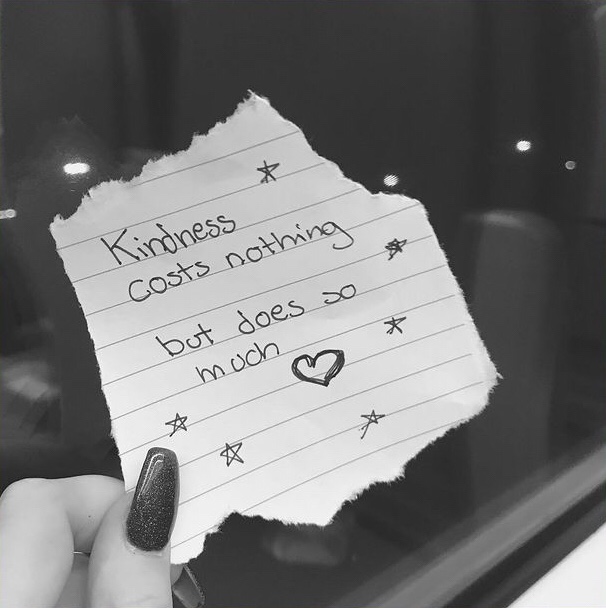 Kindness
costs nothing
but does so
much